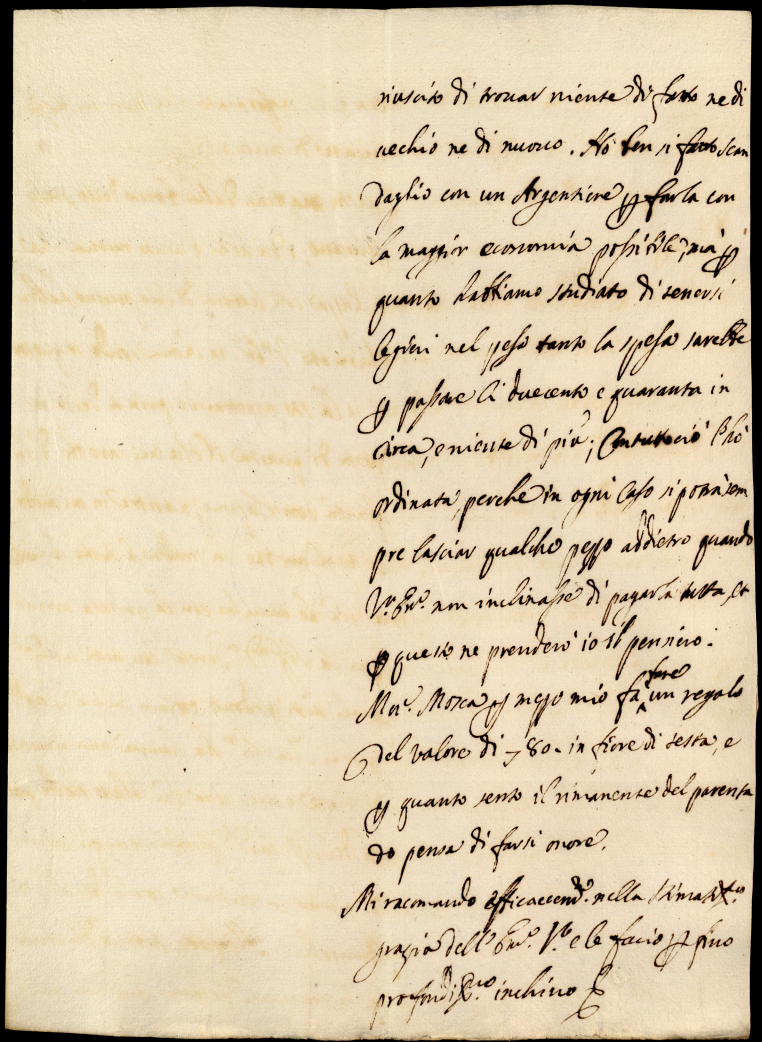 riuscito di trovar niente di fatto ne di
uechio ne di nuouo. Hò ben si fatto scan
daglio con un Argentiere ꝑ farla con
la maggior economia possibile, mà ꝑ
quanto habbiamo studiato di tenersi
legieri nel peso tanto la spesa sarebbe
ꝑ passare li duecento e quaranta in
circa, e niente di più; Contuttociò l'hò
ordinata, perche in ogni caso si potrà sem
pre lasciar qualche pezzo addietro quando
V.ra Em.a non inclinasse di pagarla tutta, et
ꝑ questo ne prenderò io il pensiero.
Mon.r Mosca ꝑ mezo mio fa fare un regalo
del valore di 80 in fiore di testa, e
ꝑ quanto sento il rimanente del parenta
do pensa di farsi onore.
Mi racomando efficacem.te nella stimatis.ma
grazia dell' Em.a V.ra e le facio ꝑ fino
profondis.mo inchino